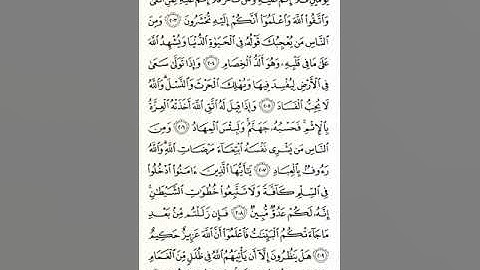 يَوْمَيْنِ فَلَآ إِثْمَ عَلَيْهِ وَمَن تَأَخَّرَ فَلَآ إِثْمَ عَلَيْهِ لِمَنِ ٱتَّقَىٰ
وَٱتَّقُوا۟ ٱللَّهَ وَٱعْلَمُوٓا۟ أَنَّكُمْ إِلَيْهِ تُحْشَرُونَ ۝٢٠٣ وَمِنَ
ٱلنَّاسِ مَن يُعْجِبُكَ قَوْلُهُۥ فِى ٱلْحَيَوٰةِ ٱلدُّنْيَا وَيُشْهِدُ ٱللَّهَ
عَلَىٰ مَا فِى قَلْبِهِۦ وَهُوَ أَلَدُّ ٱلْخِصَامِ ۝٢٠٤ وَإِذَا تَوَلَّىٰ سَعَىٰ
فِى ٱلْأَرْضِ لِيُفْسِدَ فِيهَا وَيُهْلِكَ ٱلْحَرْثَ وَٱلنَّسْلَ ۗ وَٱللَّهُ
لَا يُحِبُّ ٱلْفَسَادَ ۝٢٠٥ وَإِذَا قِيلَ لَهُ ٱتَّقِ ٱللَّهَ أَخَذَتْهُ ٱلْعِزَّةُ
بِٱلْإِثْمِ ۚ فَحَسْبُهُۥ جَهَنَّمُ ۚ وَلَبِئْسَ ٱلْمِهَادُ ۝٢٠٦ وَمِنَ
ٱلنَّاسِ مَن يَشْرِى نَفْسَهُ ٱبْتِغَآءَ مَرْضَاتِ ٱللَّهِ ۗ وَٱللَّهُ
رَءُوفٌۢ بِٱلْعِبَادِ ۝٢٠٧ يَٰٓأَيُّهَا ٱلَّذِينَ ءَامَنُوا۟ ٱدْخُلُوا۟
فِى ٱلسِّلْمِ كَآفَّةً وَلَا تَتَّبِعُوا۟ خُطُوَٰتِ ٱلشَّيْطَٰنِ ۚ
إِنَّهُۥ لَكُمْ عَدُوٌّ مُّبِينٌ ۝٢٠٨ فَإِن زَلَلْتُم مِّنۢ بَعْدِ
مَا جَآءَتْكُمُ ٱلْبَيِّنَٰتُ فَٱعْلَمُوٓا۟ أَنَّ ٱللَّهَ عَزِيزٌ حَكِيمٌ
۝٢٠٩ هَلْ يَنظُرُونَ إِلَّآ أَن يَأْتِيَهُمُ ٱللَّهُ فِى ظُلَلٍ مِّنَ ٱلْغَمَامِ